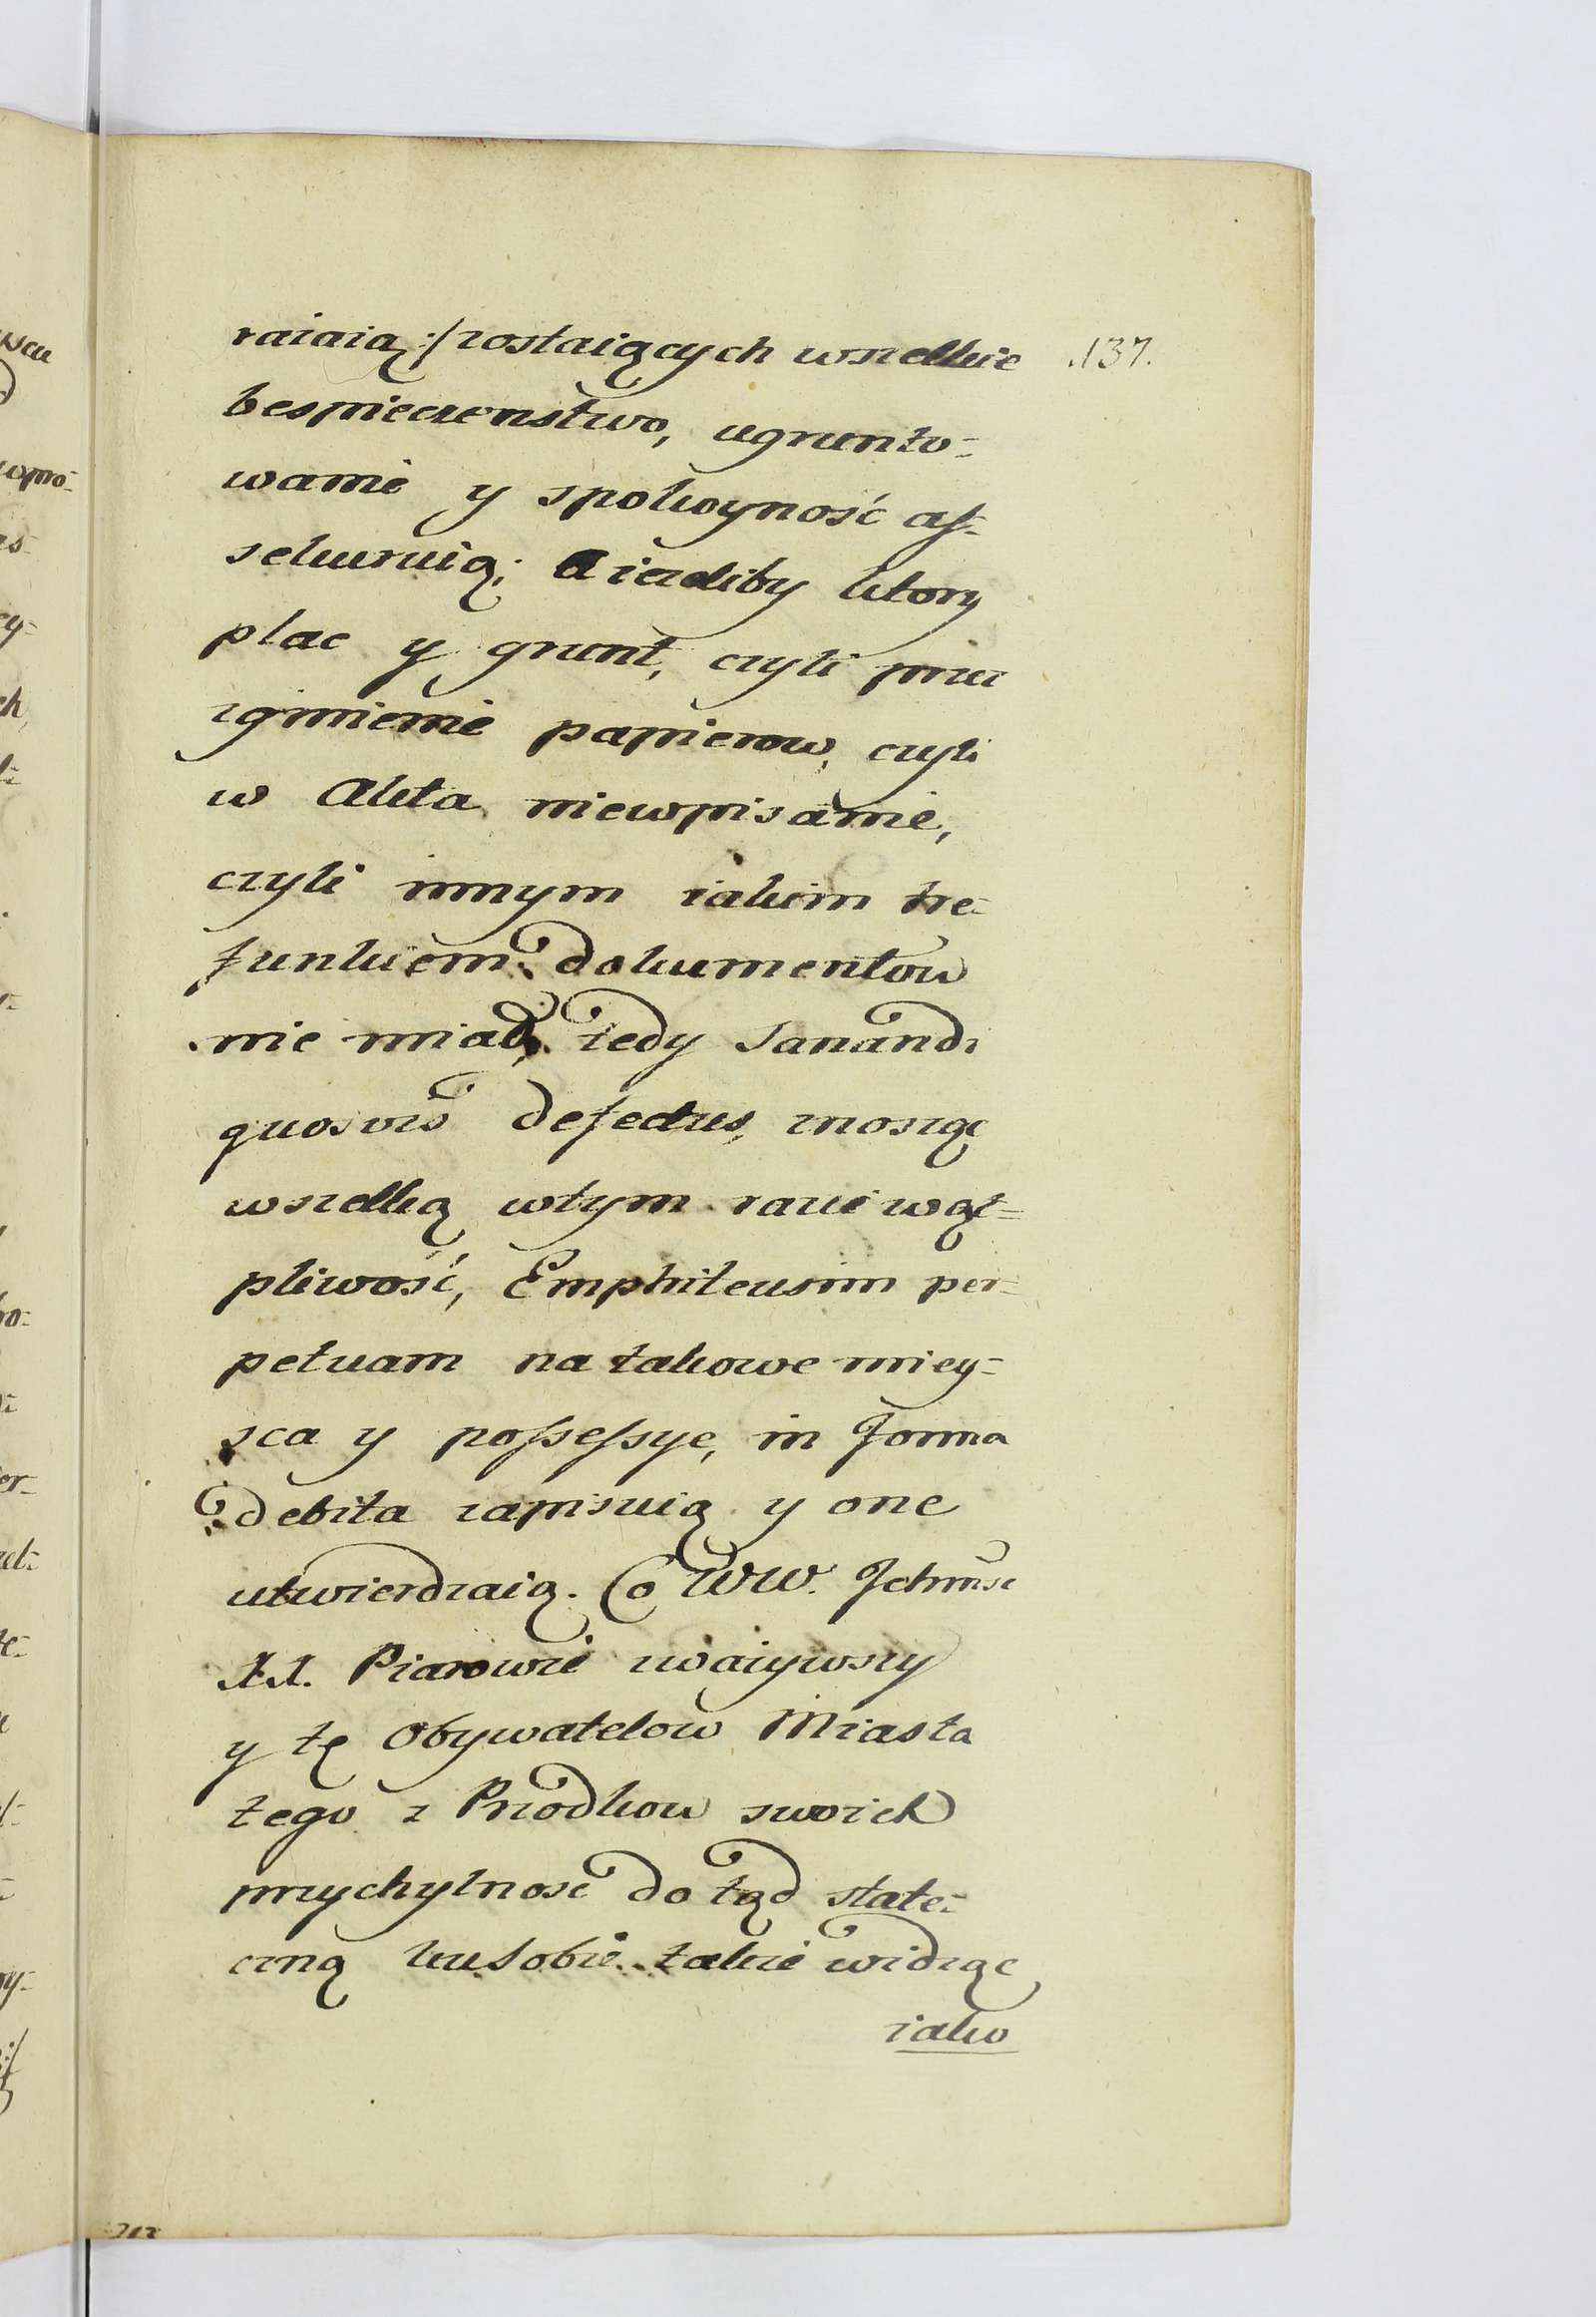 raiaią :/ zostaiących wszelkie 137.
bespieczenstwo, ugrunto=
wanie y spokoyność as=
sekuruią; A ieżeliby ktory
plac y grunt, czyli przez
zginienie papierow, czyli
w Akta niewpisanie,
czyli innym iakim tre=
funkiem dokumentow
nie miał, tedy sanandi
quosvis defectus, znosząc
wszelką wtym razie wąt=
pliwość, Emphiteusim per=
petuam na takowe miey=
sca y possessye, in Forma
debita zapisuią y one
utwierdzaią. Co WW. Jchmsc
XX. Piarowie uważywszy
y tę Obywatelow Miasta
tego z Przodkow swoich
przychylnosc do tąd state=
czną ku sobie takie widząc
iako